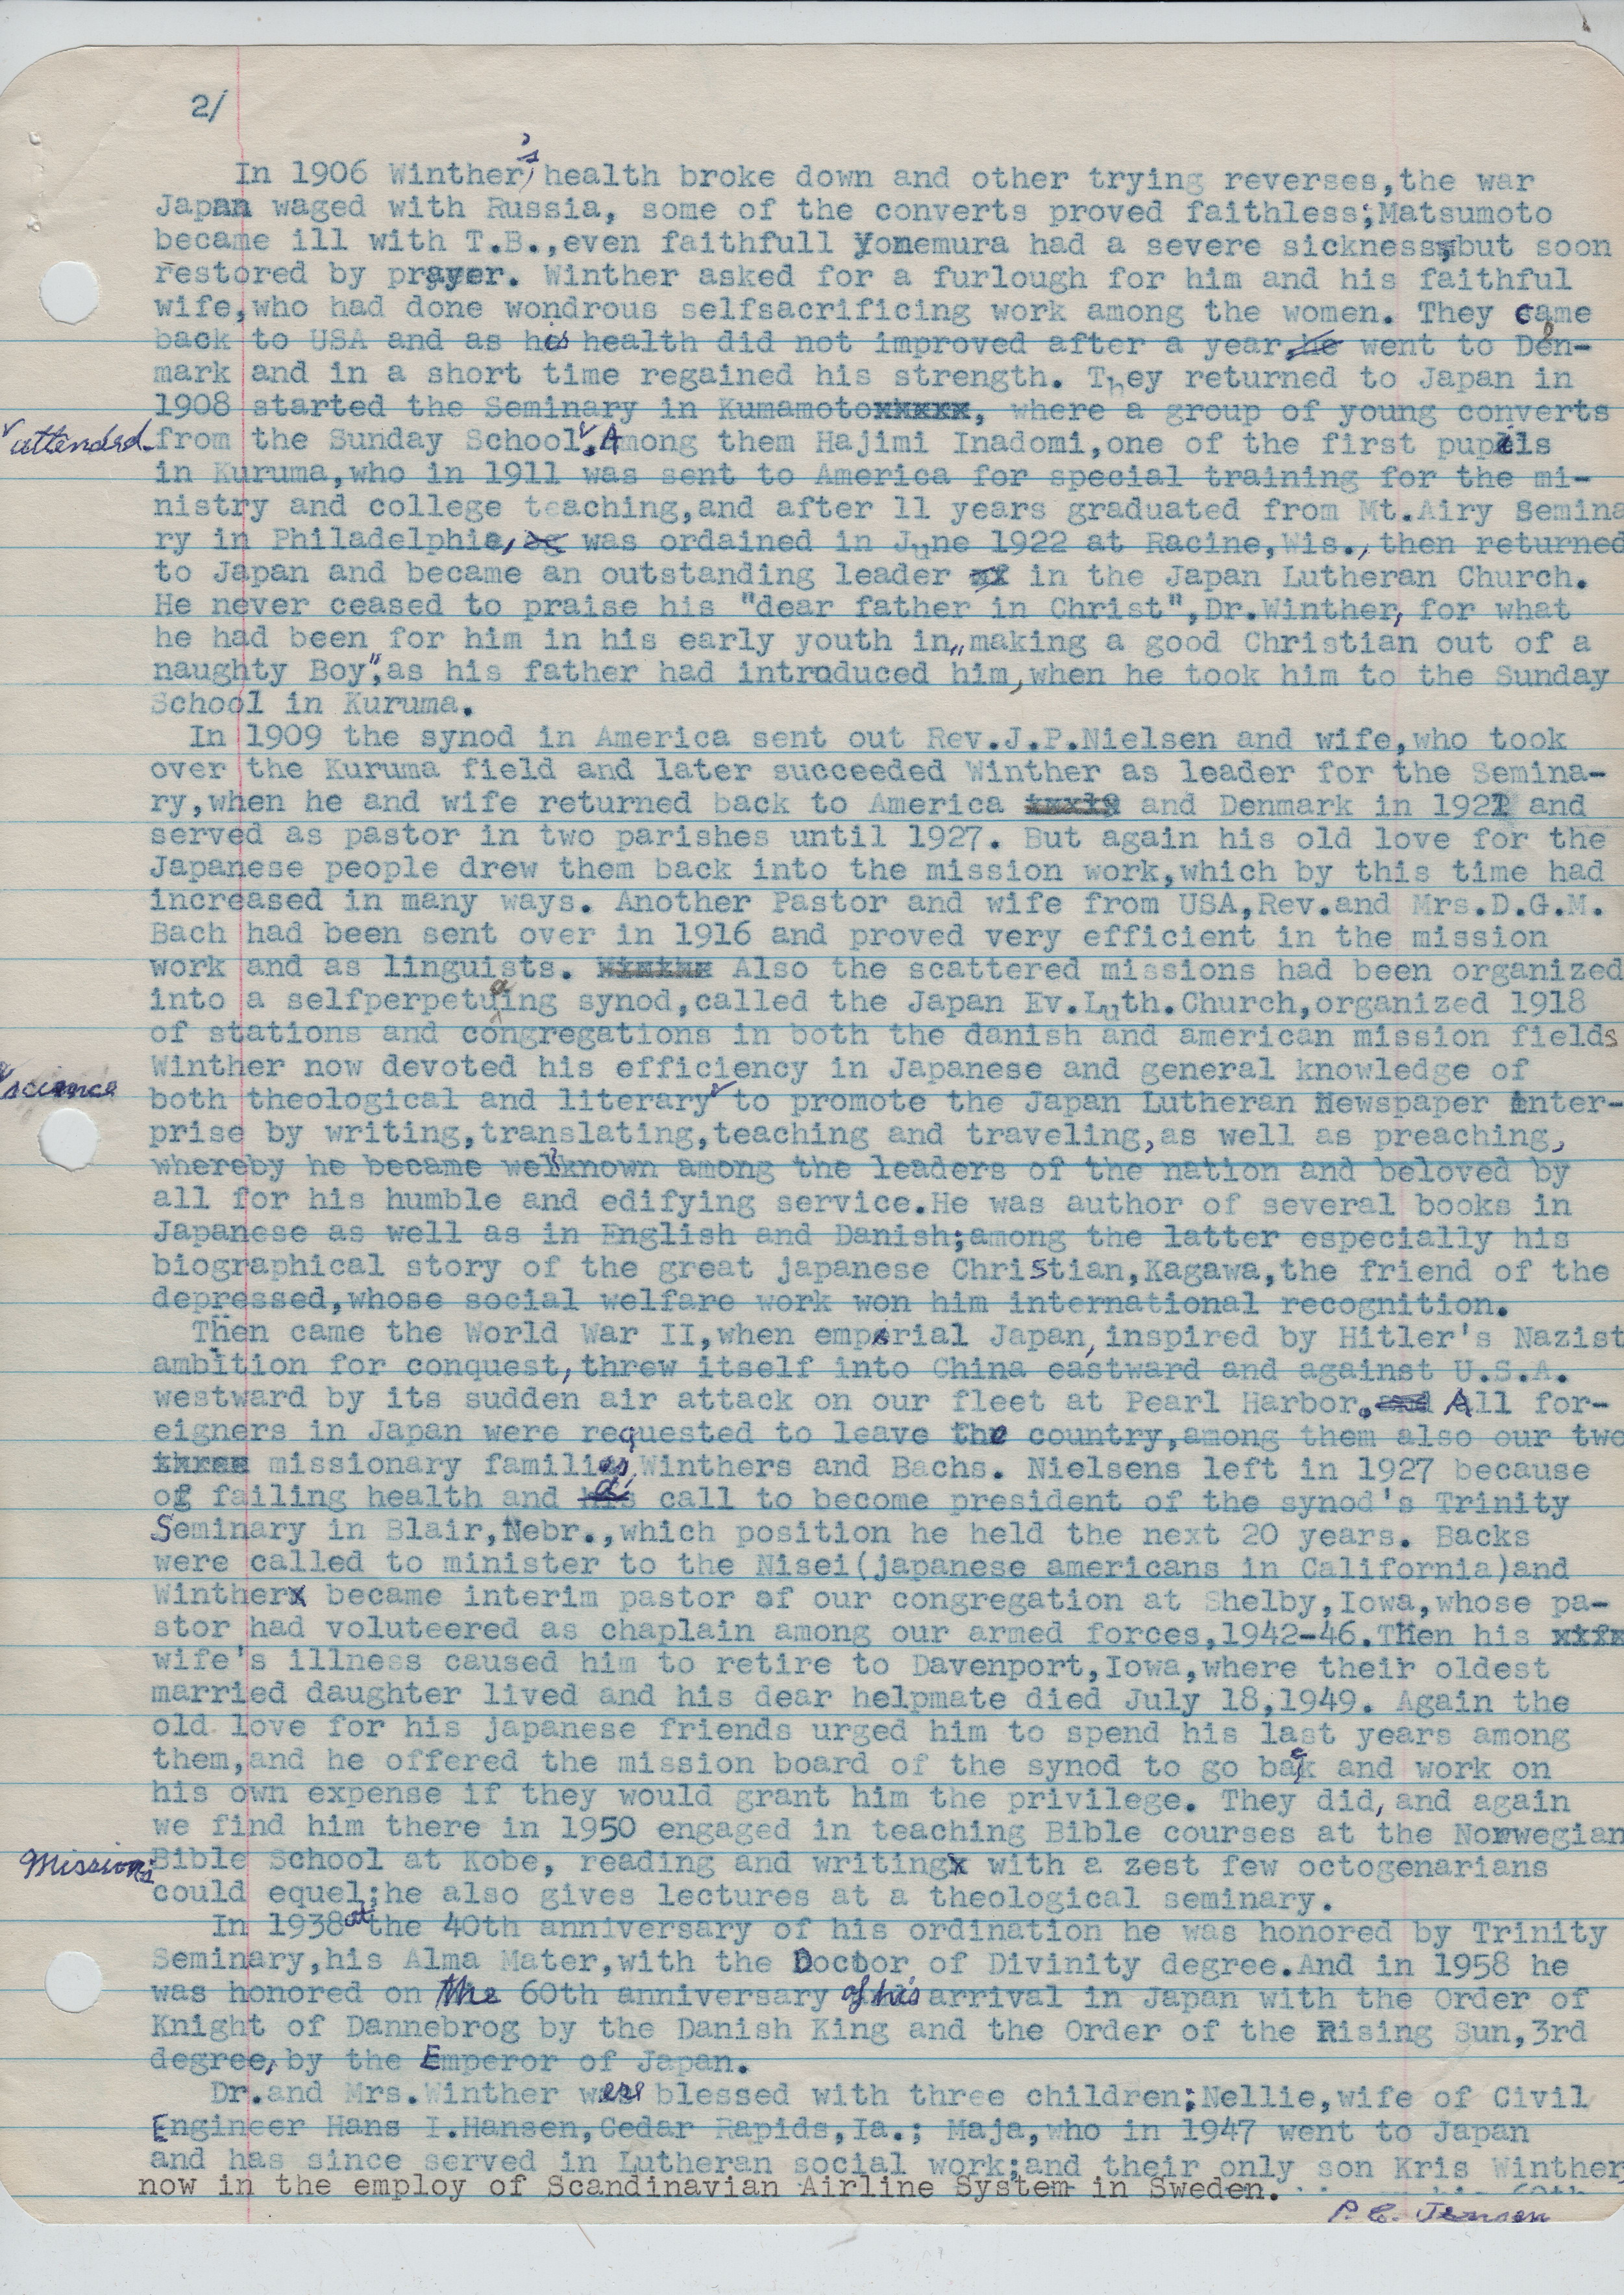 2/
In 1906 Winther's health broke down and other trying reverses,the war
Japan waged with Russia, some of the converts proved faithless;Matsumoto
became ill with T.B.,even faithfull Yonemura had a severe sickness,but soon
restored by prayer. Winther asked for a furlough for him and his faithful
wife,who had done wondrous selfsacrificing work among the women. They came
back to USA and as his health did not improved after a year, he went to Den-
mark and in a short time regained his strength. They returned to Japan in
1908 started the Seminary in Kumamotoxxxxx, where a group of young converts
attended
from the Sunday School. Among them Hajimi Inadomi,one of the first pupils
in Kuruma,who in 1911 was sent to America for special training for the mi-
nistry and college teaching,and after 11 years graduated from Mt.Airy Semina
ry in Philadelphia, was ordained in June 1922 at Racine,Wis., then returned
to Japan and became an outstanding leader in the Japan Lutheran Church.
He never ceased to praise his "dear father in Christ",Dr.Winther, for what
he had been for him in his early youth in „making a good Christian out of a
naughty Boy",as his father had introduced him,when he took him to the Sunday
School in Kuruma.
In 1909 the synod in America sent out Rev.J.P.Nielsen and wife,who took
over the Kuruma field and later succeeded Winther as leader for the Semina-
ry,when he and wife returned back to America and Denmark in 1921 and
served as pastor in two parishes until 1927. But again his old love for the
Japanese people drew them back into the mission work,which by this time had
increased in many ways. Another Pastor and wife from USA,Rev.and Mrs.D.G.M.
Bach had been sent over in 1916 and proved very efficient in the mission
work and as linguists. Also the scattered missions had been organized
into a selfperpetuaing synod,called the Japan Ev.Luth.Church,organized 1918
of stations and congregations in both the danish and american mission fields
Winther now devoted his efficiency in Japanese and general knowledge of
science
both theological and literary to promote the Japan Lutheran Newspaper Enter-
prise by writing,translating,teaching and traveling,as well as preaching,
whereby he became wellknown among the leaders of the nation and beloved by
all for his humble and edifying service.He was author of several books in
Japanese as well as in English and Danish;among the latter especially his
biographical story of the great japanese Christian,Kagawa,the friend of the
depressed,whose social welfare work won him international recognition.
Then came the World War II,when emperial Japan,inspired by Hitler's Nazist
ambition for conquest,threw itself into China eastward and against U.S.A.
westward by its sudden air attack on our fleet at Pearl Harbor. and All for-
eigners in Japan were requested to leave the country,among them also our two
three missionary families,Winthers and Bachs. Nielsens left in 1927 because
of failing health and a call to become president of the synod's Trinity
Seminary in Blair,Nebr.,which position he held the next 20 years. Backs
were called to minister to the Nisei(japanese americans in California)and
Wintherx became interim pastor of our congregation at Shelby,Iowa,whose pa-
stor had voluteered as chaplain among our armed forces,1942-46.Then his xxfx
wife's illness caused him to retire to Davenport,Iowa,where their oldest
married daughter lived and his dear helpmate died July 18,1949. Again the
old love for his japanese friends urged him to spend his last years among
them,and he offered the mission board of the synod to go back and work on
his own expense if they would grant him the privilege. They did,and again
we find him there in 1950 engaged in teaching Bible courses at the Norwegian
Missions
Bible School at Kobe, reading and writingx with a zest few octogenarians
could equel;he also gives lectures at a theological seminary.
In 1938 at the 40th anniversary of his ordination he was honored by Trinity
Seminary,his Alma Mater,with the Doctor of Divinity degree.And in 1958 he
was honored on the 60th anniversary of his arrival in Japan with the Order of
Knight of Dannebrog by the Danish King and the Order of the Rising Sun,3rd
degree, by the Emperor of Japan.
Dr.and Mrs.Winther were blessed with three children;Nellie,wife of Civil
Engineer Hans I.Hansen,Cedar Rapids,Ia.; Maja,who in 1947 went to Japan
and has since served in Lutheran social work;and their only son Kris Winther
now in the employ of Scandinavian Airline System in Sweden.
P. C. Jensen